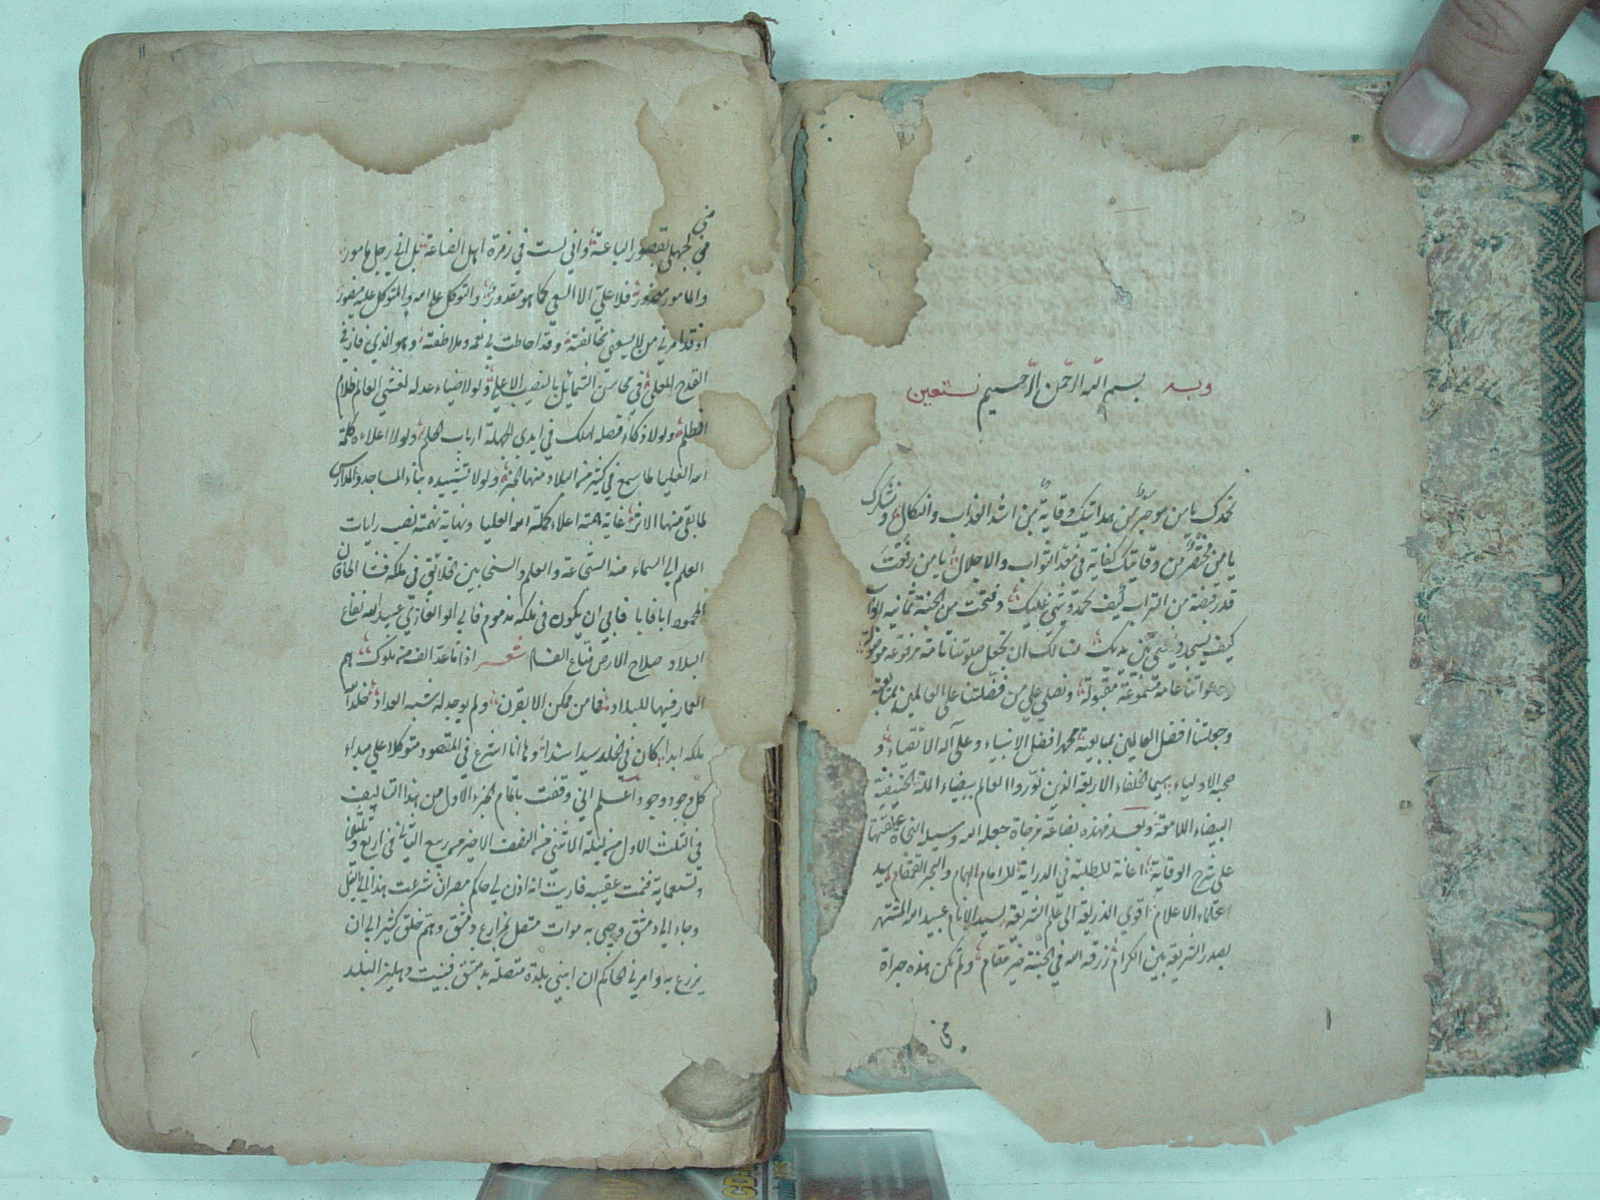 وبه بسم الله الرحمن الرحيم نستعين
نحمدك يا من من هدايتك وقاية من اشد العذاب والنكال ونشكرك
يا من مختصر من وقايتك كفاية في الثواب والاجلال يا من رفعت
قدر قبضة من التراب كيف نحمدك ونثني عليك وفتحت من الجنة ثمانية ابواب
كيف يسجد بين يديك نسألك ان تجعل صلوتنا تامة مرفوعة
ودعواتنا عامة مسموعة مقبولة ونصلي على من فضلتنا على العالمين بمتابعة
وجعلتنا افضل العالمين بمبايعته محمد افضل الانبياء وعلى آله الاتقياء و
صحبه الاولياء سيما الخلفاء الاربعة الذين نوروا العالم ببيضاء الملة الحنيفية
البيضاء اللامعة وبعد فهذه بضاعة مزجاة جعله الله وسيلة النجاة علقتها
على شرح الوقاية اعانة للطلبة في الدراية للامام الهمام والبحر القمقام سيد
اعلاء الاعلام اقوى الذريعة الى علم الشريعة لسيد الانام عبيد الله المشتهر
بصدر الشريعة بين الكرام رزقه الله في الجنة خير مقام ولم تكن هذه جراة
مني
مني
من جهلي بقصور الباعة واني لست في زمرة اهل الصناعة بل اني رجل مامور
والمامور معذور فلا علي الا السعي كما هو مقدور والتوكل على الله والمتوكل عليه منصور
اذ قد امرني من لا يسعني مخالفته وقد احاطت بي نعمه وملاطفته وهو الذي فاز في
القدح المعلى في محاسن الشمائل بالنصيب الاعلى ولولا ضياء عدله لغشي العالم ظلام
الظلم ولولا ذكاء فضله لهلك في ايدي الجهلة ارباب الحلم ولولا اعلاءه كلمة
الله العليا لما سمع في كثير من البلاد منها الخبر ولولا تشييده بناء المساجد والمدارس
لما بقي منها الاثر غاية همته اعلاء كلمة الله العليا ونهاية نهمته نصب رايات
العلم الى السماء منه الشجاعة والعلم والسخا بين الخلائق في ملكه فشا الخاقان
المحمود ابا فابا فابى ان يكون في ملكه مذموم فابي ابو الغازي عبيد الله بقاع
البلاد صلاح الارض شعر اذا ما عد الف من ملوك هم
العمار فيها للبلاد فما من ممكن الا بقرن ولم يوجد له شبه العداد خلدا
ملكه ابدا كان في الخلد سيدا سندا وها انا اشرع في المقصود متوكلا على مبداء
كل وجود وجود اعلم اني وقفت باتمام الجزء الاول من هذا التاليف
في الثلث الاول من ليلة الاثنين من النصف الاخير من ربيع الثاني في اربع وثلثين
وتسعماية فنمت عقيبه فاريت انه اذن لي حاكم مصر ان شرعت هذا لي النيل
وجاء الى دمشق وجيئ به موات متصل بمزارع دمشق وهم خلق كثير الى ان
يزرع به وامرني الحاكم ان ابني بلدة متصلة بدمشق فبنيت دهليز البلد